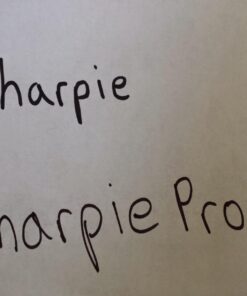 harpie
harpie Pro